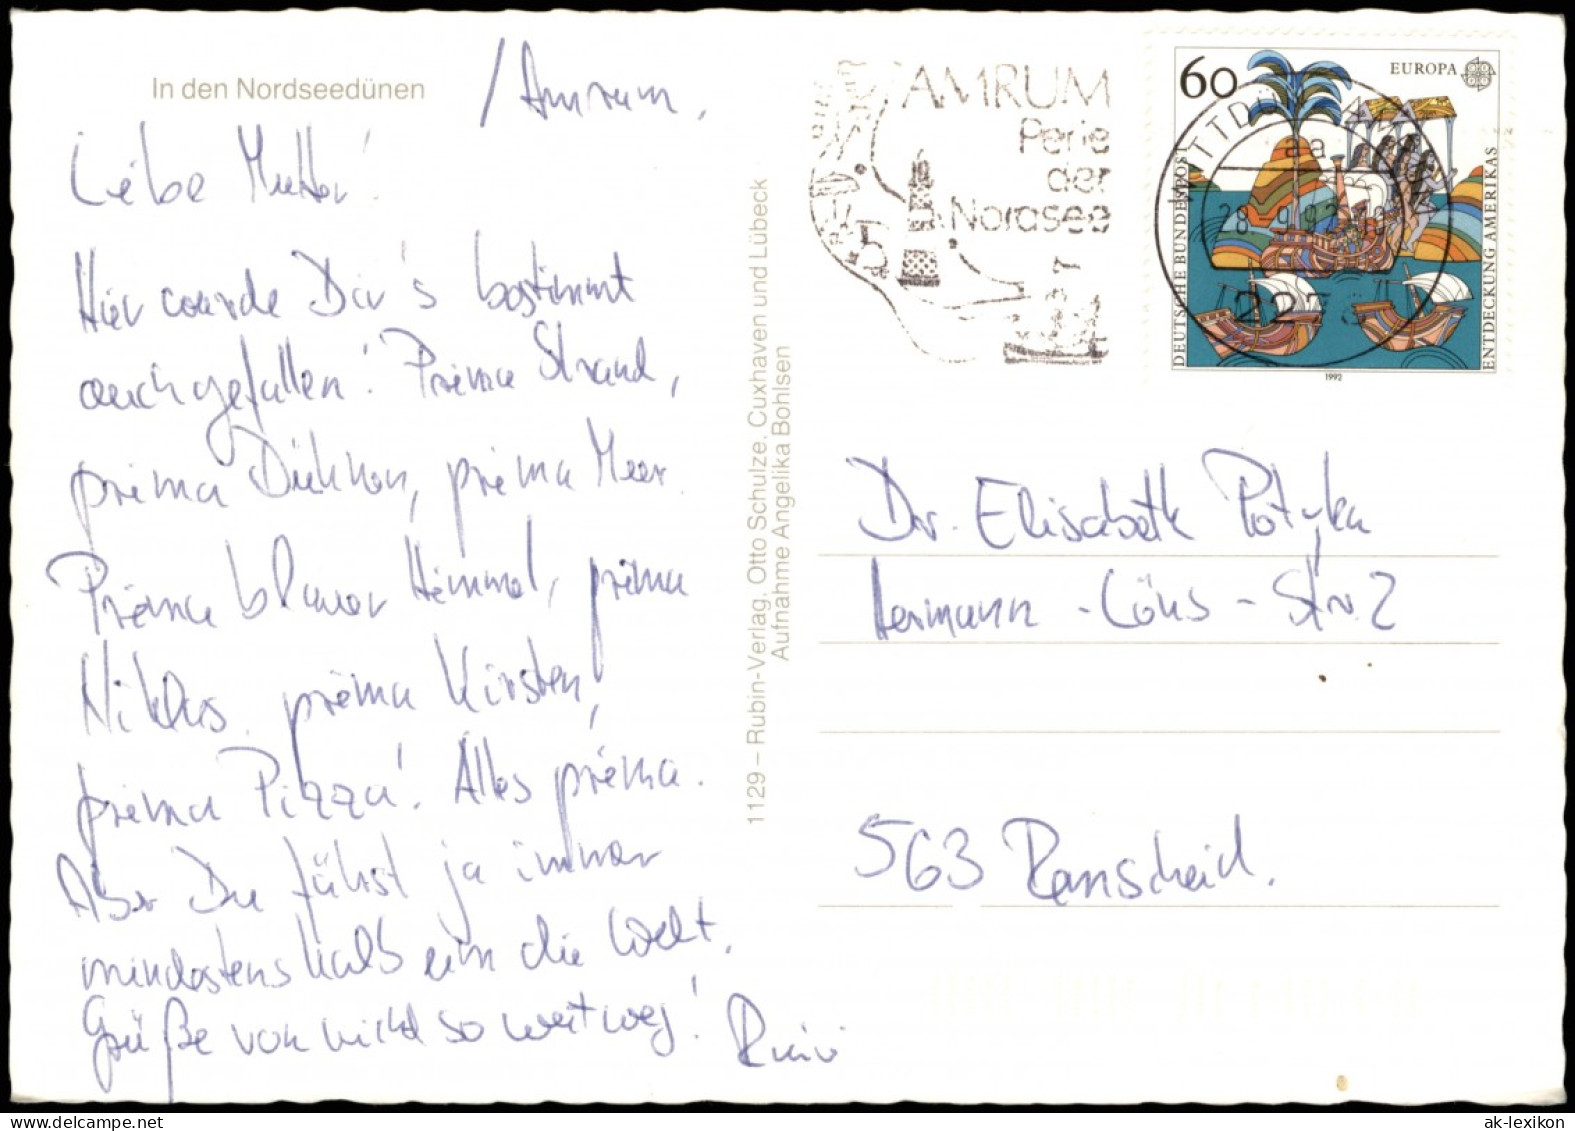 In den Nordseedünen
/Amrum,
Liebe Mutter!
Hier würde Dir's bestimmt
auch gefallen! Prima Strand,
prima Dünen, prima Meer.
Prima blauer Himmel, prima
Niklas, prima Kirsten,
prima Pizza! Alles prima.
Aber Du fährst ja immer
mindestens halb um die Welt.
Grüße von nicht so weit weg!
1129 – Rubin-Verlag, Otto Schulze, Cuxhaven und Lübeck
Aufnahme Angelika Bohlsen
AMRUM
Perle
der
Nordsee
60
EUROPA
DEUTSCHE BUNDESPOST
ENTDECKUNG AMERIKAS
1992
WITTDÜN
aa
28.-9.92
227
Dr. Elisabeth Potyka
Hermann-Löns-Str. 2
563 Remscheid.
ak-lexikon